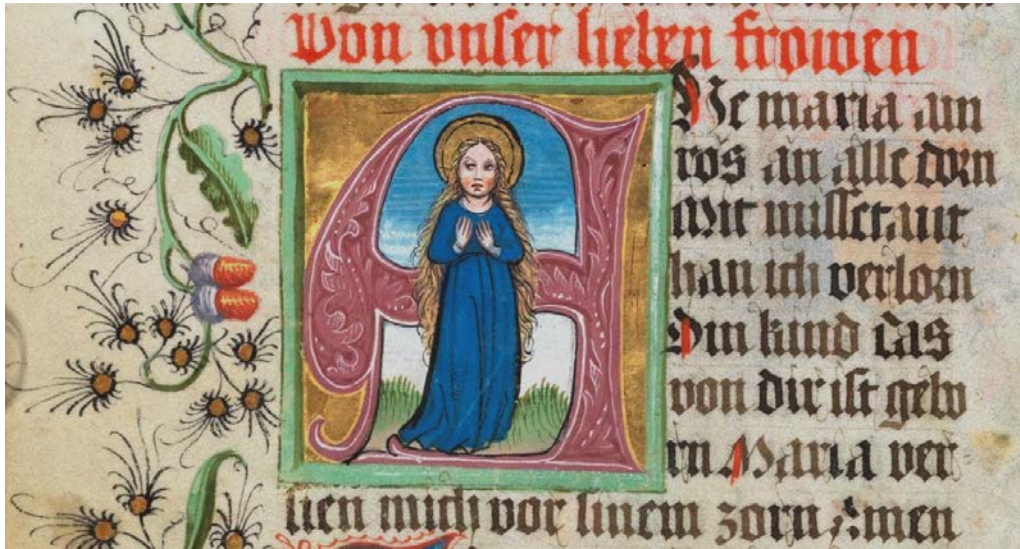 Von vnser lieben frowen
Ave maria ain
ros an alle dorn
Mit missetautt
han ich verlorn
Din kind das
von dir ist gebo
rn Maria ver
sien mich vor sinem zorn Amen